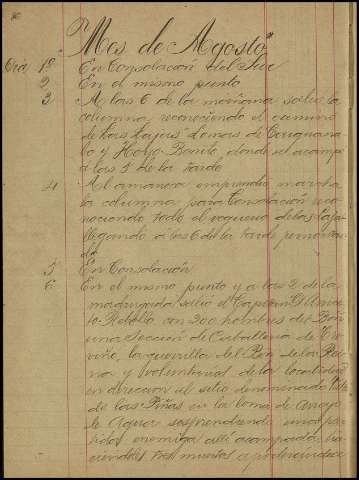 "Mes de Agosto"
Dia 1º En Consolación del Sur
2 En el mismo punto
3 A las 6 de la mañana salió la
columna, reconociendo el camino
de Lomas de
y Hoyo Bonito, donde se acampó
a las 5 de la tarde
4 Al amanecer emprendió marcha
la columna para Consolación reco
nociendo todo el
llegando á las 6 de la tarde
5 En Consolación
6 En el mismo punto y a las 2 de la
madrugada salió el Capitan D.
Rebollo con 200 hombres del Bon
una Sección de Caballeria de Tre
viño, la guerrilla del Bon de la Rei
na y voluntarios de la localidad
en dirección al sitio denominado
de las Piñas en la loma de
Agua sosprendiendo una par
tida enemiga alli acampada, ha
ciendoles tres muertos